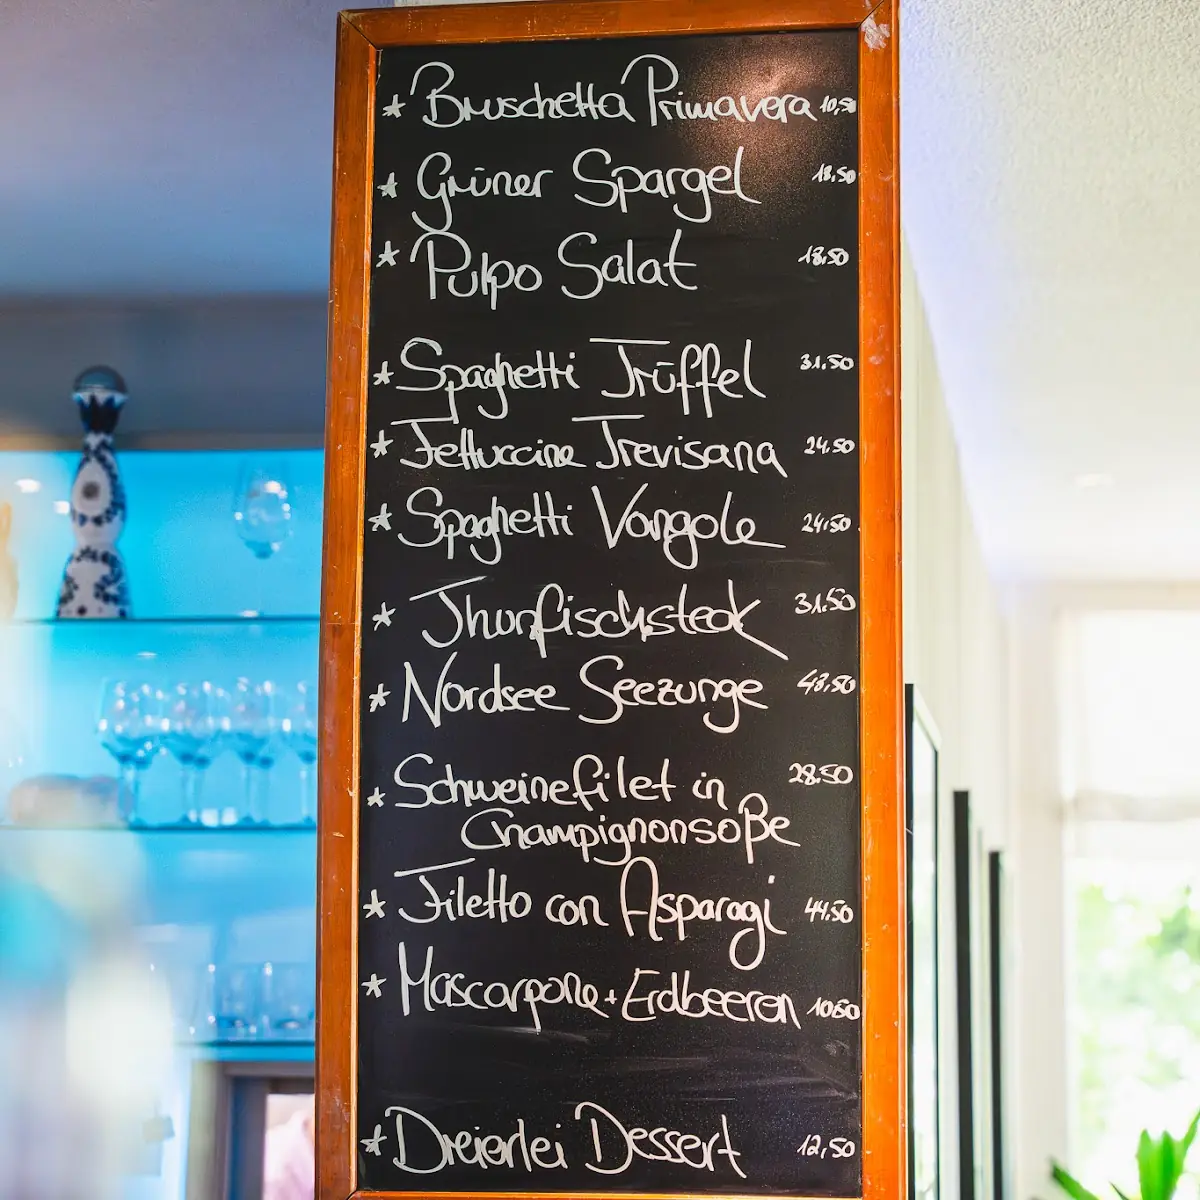 * Bruschetta Primavera 10,50
* Grüner Spargel 18.50
* Pulpo Salat 18.50
* Spaghetti Trüffel 31.50
* Fettuccine Trevisana 24.50
* Spaghetti Vongole 24.50
* Thunfischsteak 31.50
* Nordsee Seezunge 48.50
* Schweinefilet in 28.50
Champignonsoße
* Filetto con Asparagi 44.50
* Mascarpone + Erdbeeren 10.50
* Dreierlei Dessert 12,50